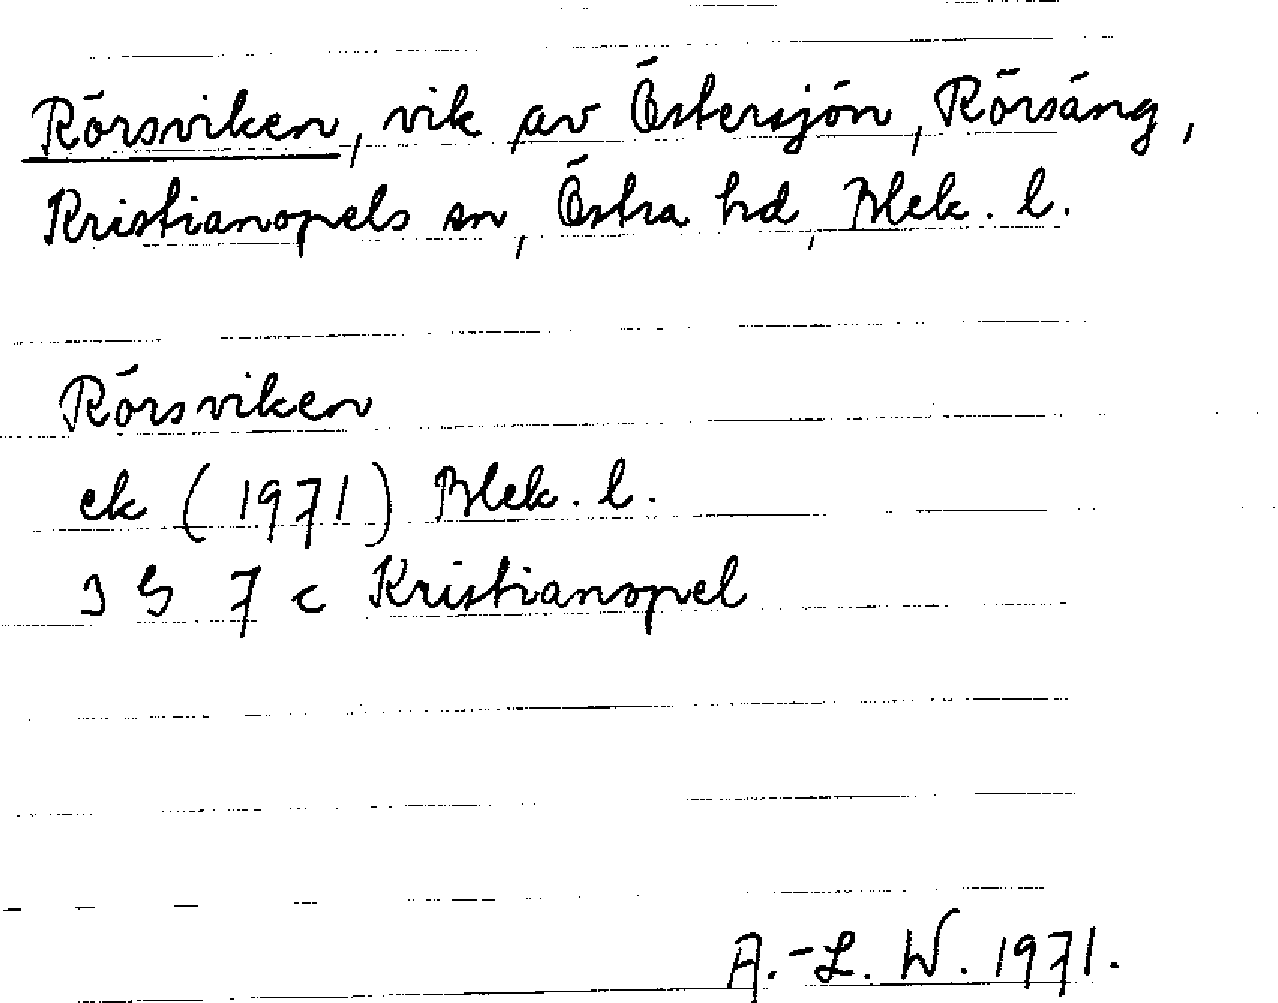 Rörsviken, vik av Östersjön, Rörsäng,
Kristianopels sn, Östra hd, Blek. l.
Rörsviken
ek (1971) Blek. l.
3 G 7 c Kristianopel
A.-L. W. 1971.